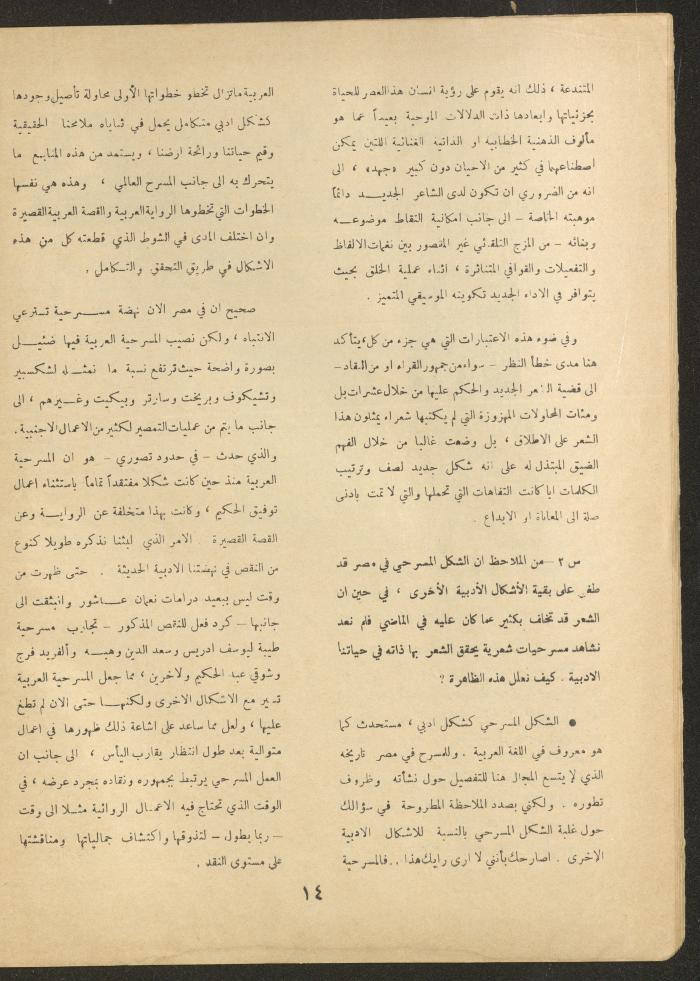 المتندعة ، ذلك انه يقوم على رؤية انسان هذا العصر للحياة
بجزئياتها وابعادها ذات الدلالات الموحية بعيداً عما هو
مألوف الذهنية الخطابية او الذاتية الغنائية اللتين يمكن
اصطناعهما في كثير من الاحيان دون كبير «جهد» ، الى
انه من الضروري ان تكون لدى الشاعر الجديـد دائماً
موهبته الخاصة – الى جانب امكانية التقاط موضوعـــه
وبنائه – من المزج التلقائي غير المقصور بين نغمات الالفاظ
والتفعيلات والقوافي المتناثرة ، اثناء عملية الخلق بحيث
يتوافر في الاداء الجديد تكوينه الموسيقي المتميز .
وفي ضوء هذه الاعتبارات التي هي جزء من كل، يتأكد
هنا مدى خطأ النظر – سواء من جمهور القراء او من النقاد –
الى قضية الشعر الجديد والحكم عليها من خلال عشرات بل
ومئات المحاولات المهزوزة التي لم يكتبها شعراء يمثلون هذا
الشعر على الاطلاق ، بل وضعت غالبا من خلال الفهم
الضيق المبتذل له على انه شكل جديد لصف وترتيب
الكلمات ايا كانت التفاهات التي تحملها والتي لا تمت بادنى
صلة الى المعاناة او الابداع .
س ٢ – من الملاحظ ان الشكل المسرحي في مصر قد
طغى على بقية الأشكال الأدبية الأخرى ، في حين ان
الشعر قد تخلف بكثير عما كان عليه في الماضي فلم نعد
نشاهد مسرحيات شعرية يحقق الشعر بها ذاته في حياتنا
الادبية . كيف نعلل هذه الظاهرة ؟
● الشكل المسرحي كشكل ادبي ، مستحدث كما
هو معروف في اللغة العربية . وللمسرح في مصر تاريخه
الذي لا يتسع المجال هنا للتفصيل حول نشأته وظروف
تطوره . ولكني بصدد الملاحظة المطروحة في سؤالك
حول غلبة الشكل المسرحي بالنسبة للاشكال الادبية
الاخرى . اصارحك بأنني لا ارى رايك هذا .. فالمسرحية
العربية ماتزال تخطو خطواتها الأولى محاولة تأصيل وجودها
كشكل ادبي متكامل يحمل في ثناياه ملامحنا الحقيقية
وقيم حياتنا ورائحة ارضنا ، ويستمد من هذه المنابع ما
يتحرك به الى جانب المسرح العالمي ، وهذه هي نفسها
الخطوات التي تخطوها الرواية العربية والقصة العربية القصيرة
وان اختلف المدى في الشوط الذي قطعته كل من هذه
الاشكال في طريق التحقق والتـكامل .
صحيح ان في مصر الان نهضة مســـرحية تسترعي
الانتباه ، ولكن نصيب المسرحية العربية فيها ضئيــل
بصورة واضحة حيث ترتفع نسبة ما نمثـله لشكسبير
وتشيكوف وبريخت وسارتر وبيكيت وغـيرهم ، الى
جانب ما يتم من عمليات التمصير لكثير من الاعمال الاجنبية .
والذي حدث – في حدود تصوري – هو ان المسرحية
العربية منذ حين كانت شكلا مفتقداً تماماً باستثناء اعمال
توفيق الحكيم ، وكانت بهذا متخلفة عن الروايـة وعن
القصة القصيرة . الامر الذي لبثنا نذكره طويلا كنوع
من النقص في نهضتنا الادبية الحديثة . حتى ظهرت من
وقت ليس ببعيد درامات نعمان عـاشور وانبثقت الى
جانبها – كرد فعل للنقص المذكور – تجارب مسرحية
طيبة ليوسف ادريس وسعد الدين وهبــه وألفريد فرج
وشوقي عبد الحكيم ولاخرين ، مما جعل المسرحية العربية
تسير مع الاشكال الاخرى ولكنهـا حتى الان لم تطغ
عليها ، ولعل مما ساعد على اشاعة ذلك ظهورها في اعمال
متوالية بعد طول انتظار يقارب اليأس ، الى جانب ان
العمل المسرحي يرتبط بجمهوره ونقاده بمجرد عرضه ، في
الوقت الذي تحتاج فيه الاعمـال الروائية مثـلا الى وقت
– ربما يطول – لتذوقها واكتشاف جمالياتها ومناقشتها
على مستوى النقد .
١٤